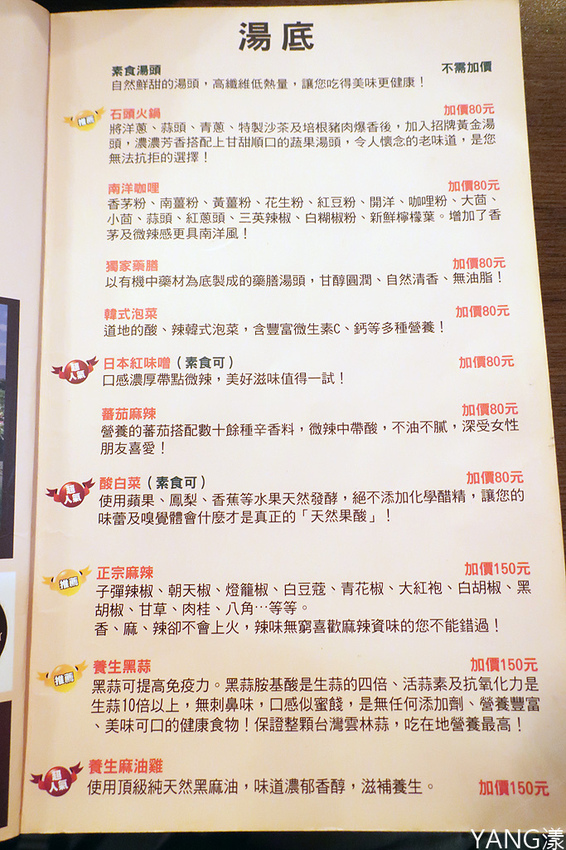 湯底
素食湯頭 不需加價
自然鮮甜的湯頭，高纖維低熱量，讓您吃得美味更健康！
推薦 石頭火鍋 加價80元
將洋蔥、蒜頭、青蔥、特製沙茶及培根豬肉爆香後，加入招牌黃金湯
頭，濃濃芳香搭配上甘甜順口的蔬果湯頭，令人懷念的老味道，是您
無法抗拒的選擇！
南洋咖哩 加價80元
香茅粉、南薑粉、黃薑粉、花生粉、紅豆粉、開洋、咖哩粉、大茴、
小茴、蒜頭、紅蔥頭、三英辣椒、白糊椒粉、新鮮檸檬葉。增加了香
茅及微辣感更具南洋風！
獨家藥膳 加價80元
以有機中藥材為底製成的藥膳湯頭，甘醇圓潤、自然清香、無油脂！
韓式泡菜 加價80元
道地的酸、辣韓式泡菜，含豐富微生素C、鈣等多種營養！
超人氣 日本紅味噌（素食可） 加價80元
口感濃厚帶點微辣，美好滋味值得一試！
蕃茄麻辣 加價80元
營養的蕃茄搭配數十餘種辛香料，微辣中帶酸，不油不膩，深受女性
朋友喜愛！
超人氣 酸白菜（素食可） 加價80元
使用蘋果、鳳梨、香蕉等水果天然發酵，絕不添加化學醋精，讓您的
味蕾及嗅覺體會什麼才是真正的「天然果酸」！
推薦 正宗麻辣 加價150元
子彈辣椒、朝天椒、燈籠椒、白豆蔻、青花椒、大紅袍、白胡椒、黑
胡椒、甘草、肉桂、八角…等等。
香、麻、辣卻不會上火，辣味無窮喜歡麻辣資味的您不能錯過！
推薦 養生黑蒜 加價150元
黑蒜可提高免疫力。黑蒜胺基酸是生蒜的四倍、活蒜素及抗氧化力是
生蒜10倍以上，無刺鼻味，口感似蜜餞，是無任何添加劑、營養豐富
、美味可口的健康食物！保證整顆台灣雲林蒜，吃在地營養最高！
超人氣 養生麻油雞 加價150元
使用頂級純天然黑麻油，味道濃郁香醇，滋補養生。
YANG漾